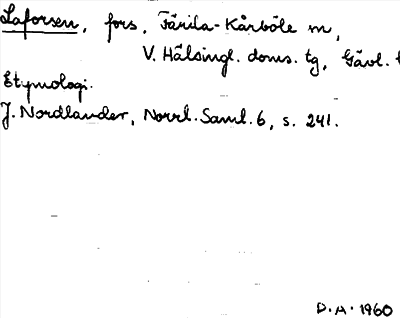 Laforsen, fors, Färila-Kårböle m,
V. Hälsingl. doms. tg, Gävl.
Etymologi.
J. Nordlander, Norrl. Saml. 6, s. 241.
D.A. 1960